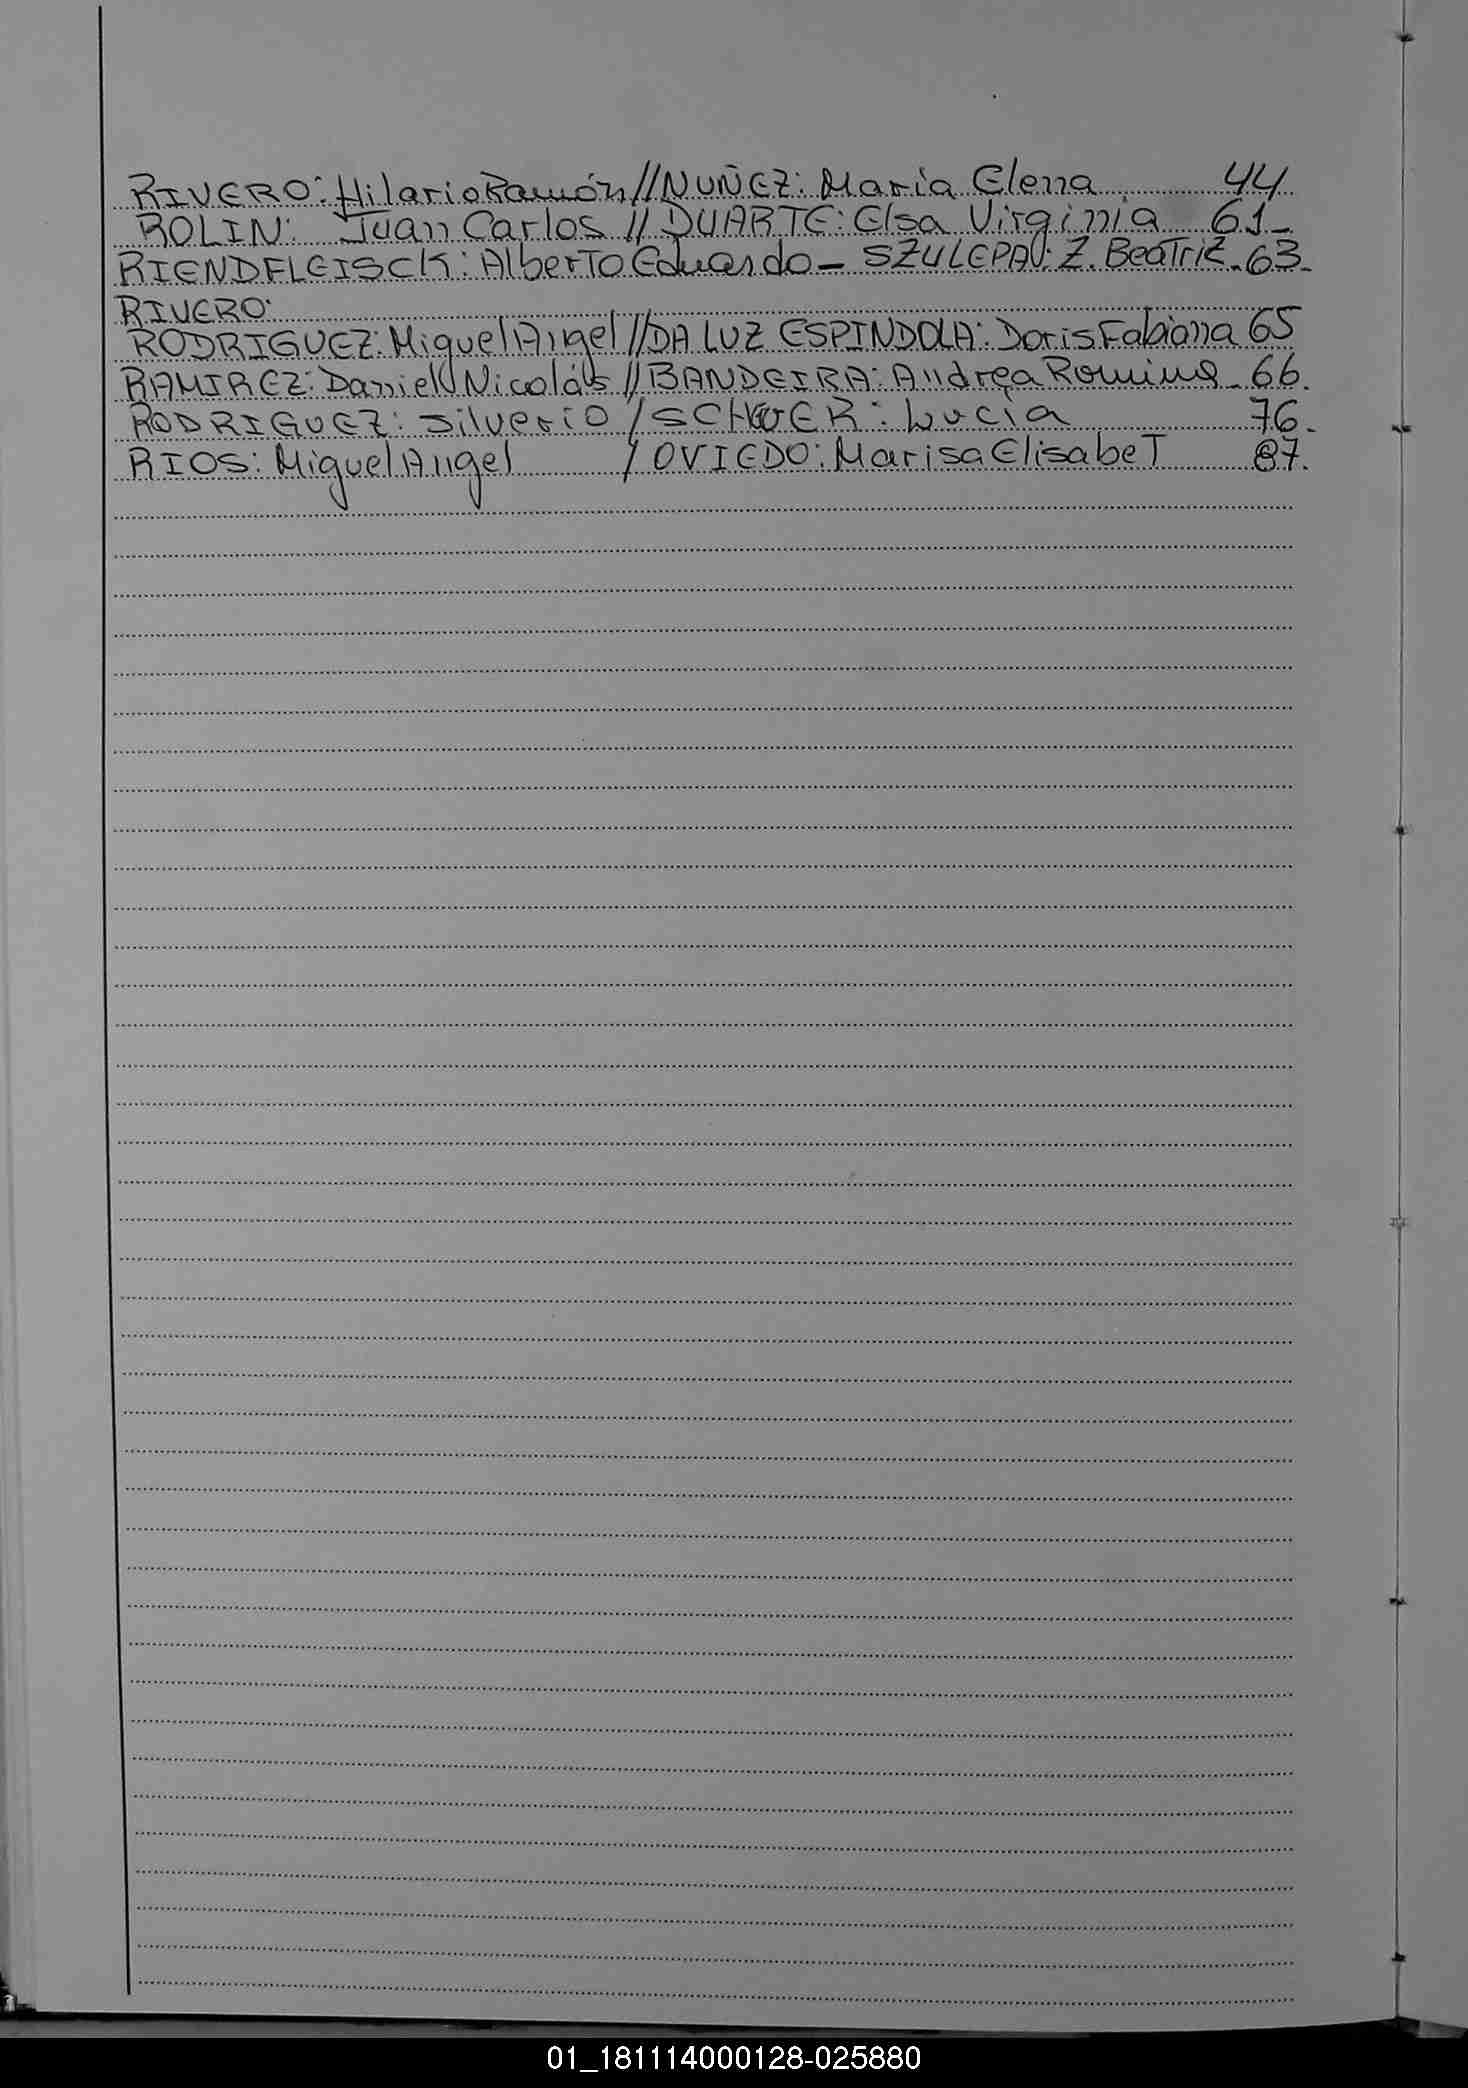 RIVERO: Hilario Ramón // NUÑEZ: María Elena 44
ROLIN: Juan Carlos // DUARTE: Elsa Virginia 61-
RIENDFLEISCK: Alberto Eduardo - SZULEPA: Z. Beatriz - 63-
RIVERO:
RODRIGUEZ: Miguel Angel // DA LUZ ESPINDOLA: Doris Fabiana 65
RAMIREZ: Daniel Nicolás // BANDEIRA: Andrea Romina - 66.
RODRIGUEZ: Silverio / Lucia 76.
RIOS: Miguel Angel / OVIEDO: Marisa Elisabet 87.
01_181114000128-025880